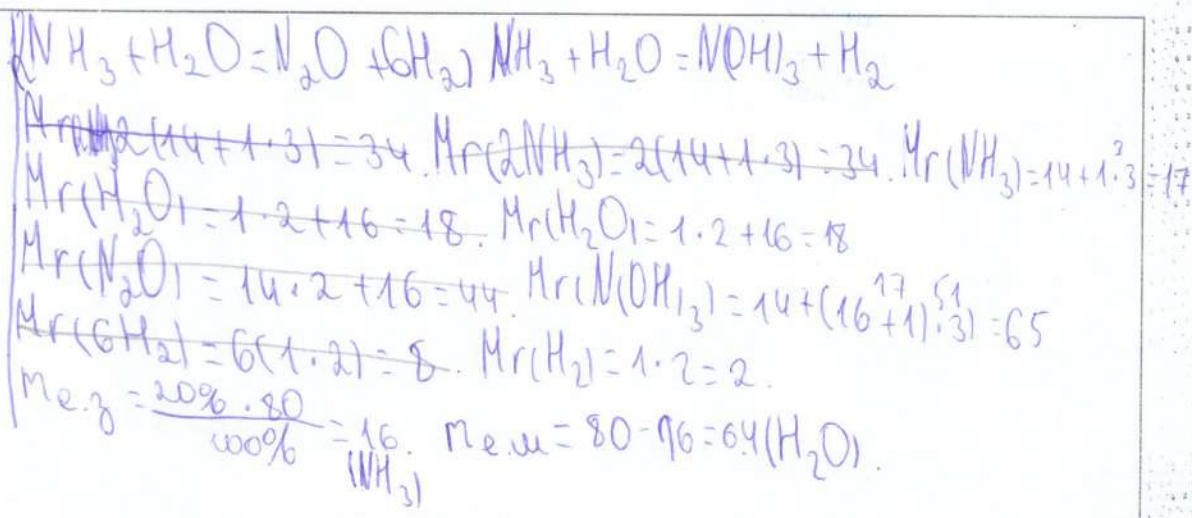 (2NH₃ + H₂O = N₂O + 6H₂) NH₃ + H₂O = N(OH)₃ + H₂
2(14+1·3) = 34. Mr(2NH₃) = 2(14+1·3) = 34. Mr(NH₃) = 14 + 1·3 = 17
Mr(H₂O) = 1·2 + 16 = 18. Mr(H₂O) = 1·2 + 16 = 18
Mr(N₂O) = 14·2 + 16 = 44. Mr(N(OH)₃) = 14 + (16+1)·3) = 65
Mr(6H₂) = 6(1·2) = 8. Mr(H₂) = 1·2 = 2.
= 20% · 80 / 100% = 16. (NH₃) = 80 - 16 = 64 (H₂O).